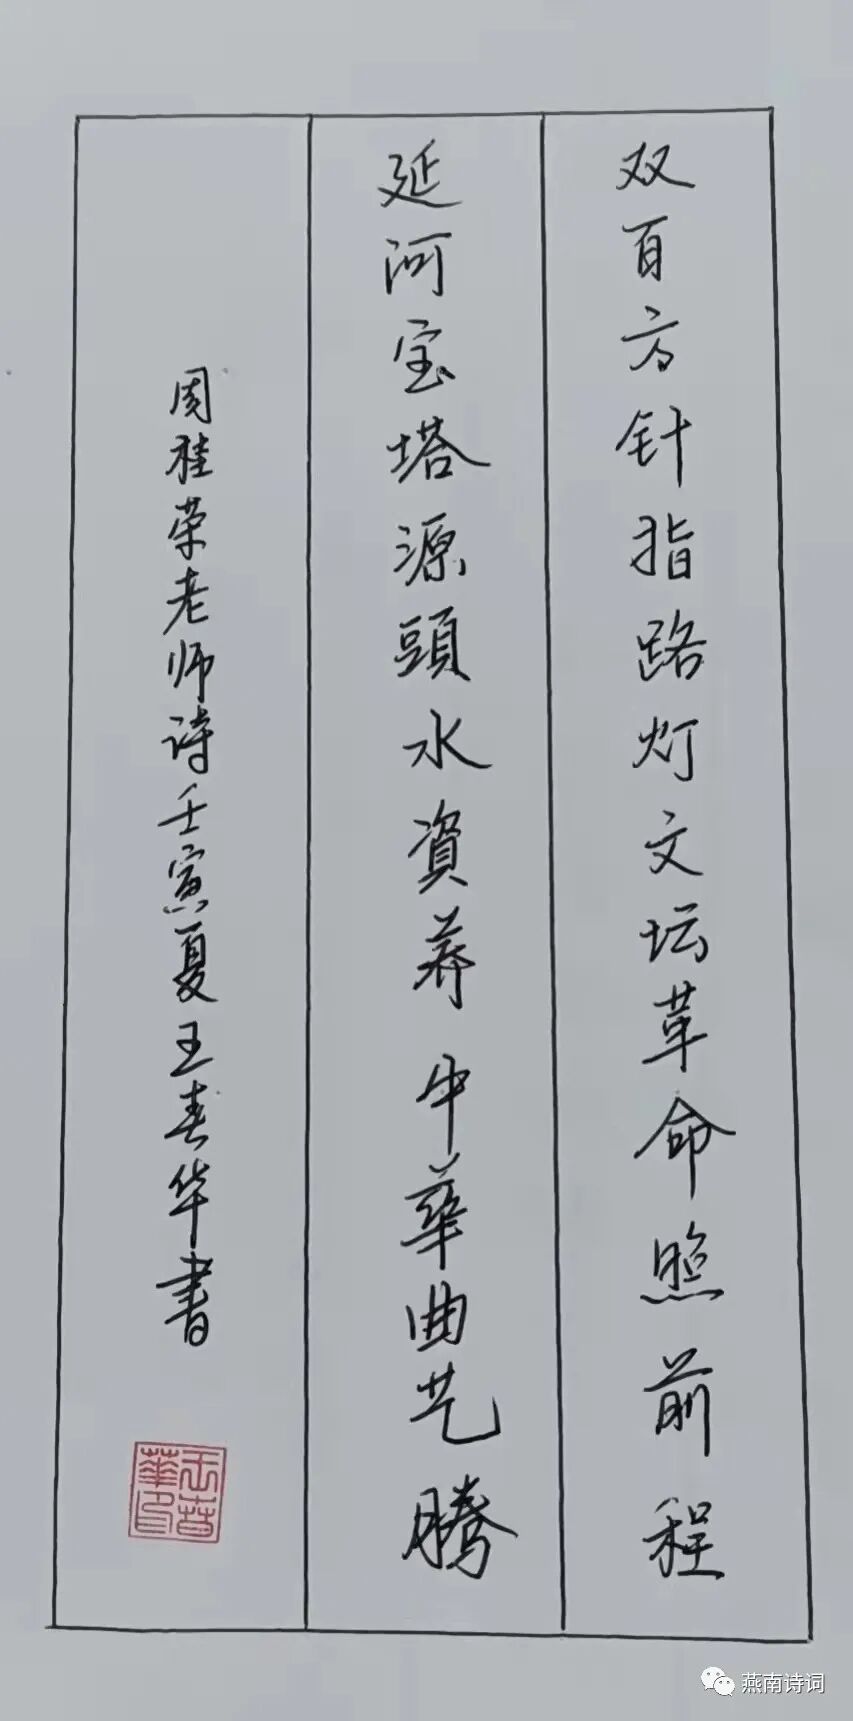 双百方针指路灯文坛革命照前程
延河宝塔源頭水資养中華曲艺腾
周桂荣老师诗壬寅夏王春华书
王春華印
燕南诗词